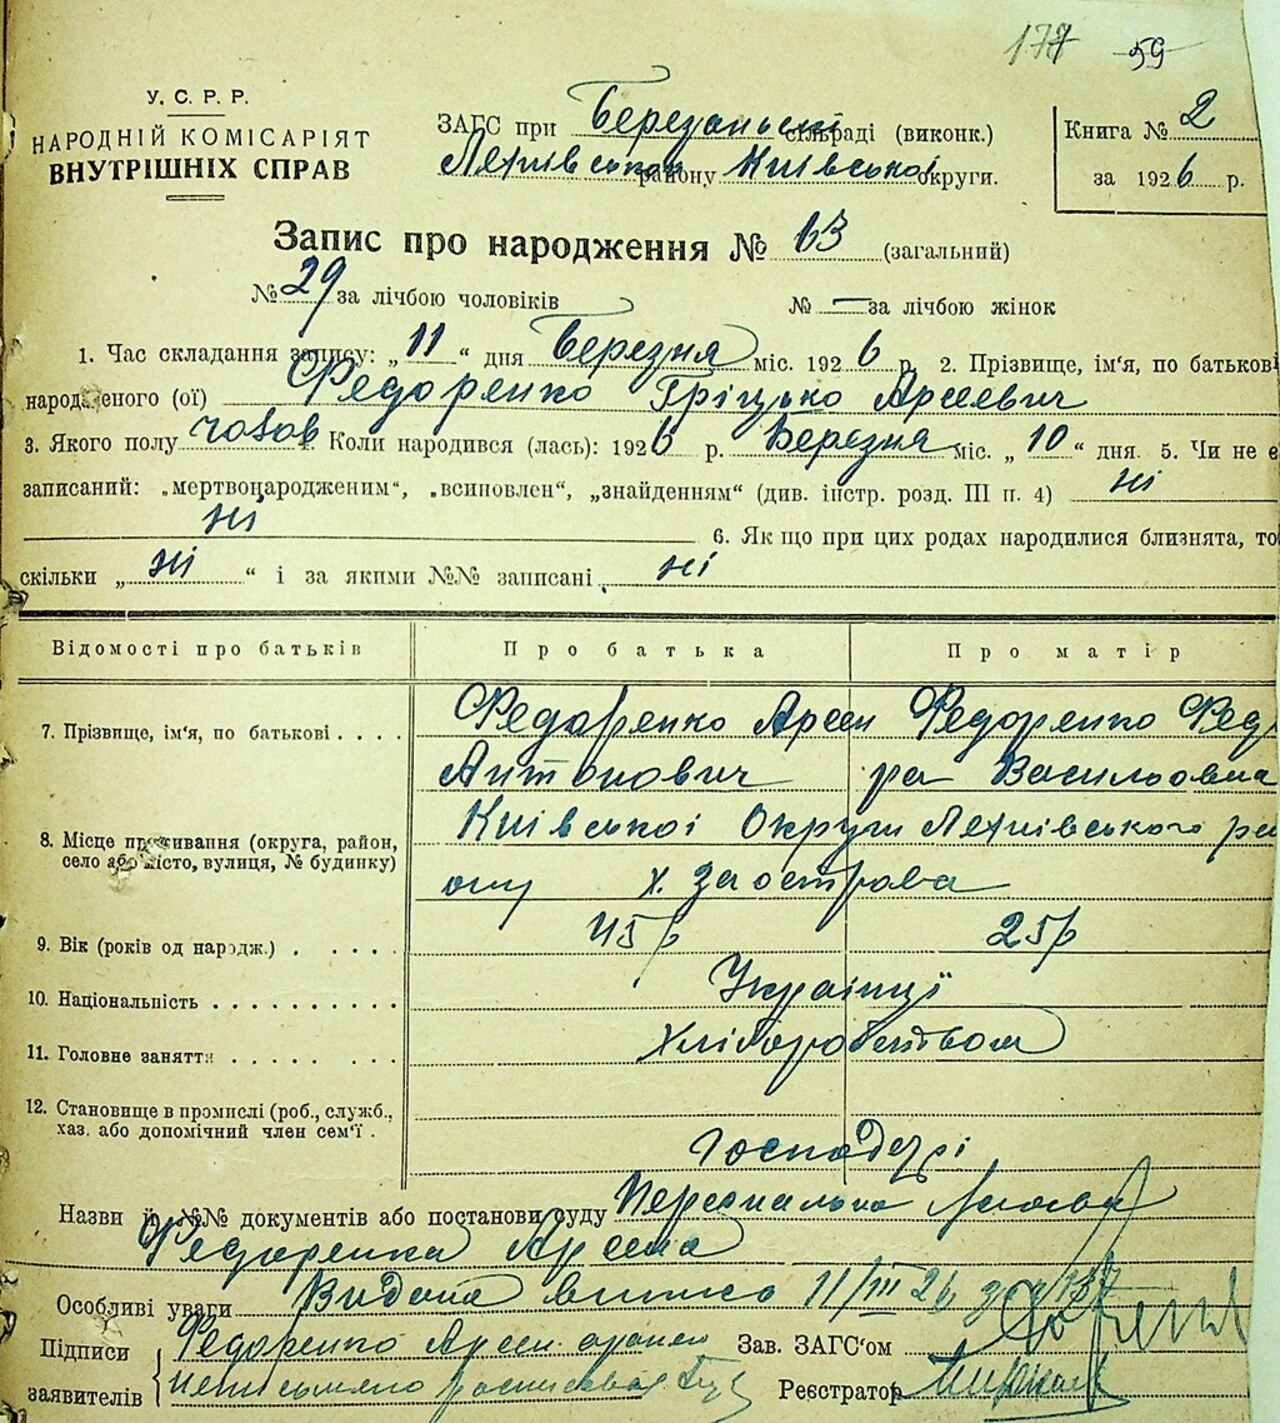 177 59
У. С. Р. Р.
НАРОДНІЙ КОМІСАРІЯТ
ВНУТРІШНІХ СПРАВ
ЗАГС при Березаньскі сільраді (виконк.)
району Київської округи.
Книга № 2
за 1926 р.
Запис про народження № 63 (загальний)
№ 29 за лічбою чоловіків № — за лічбою жінок
1. Час складання запису: „ 11 “ дня Березня міс. 1926 р. 2. Прізвище, ім'я, по батькові
народженого (ої) Федоренко Гріцько Арсеевич
3. Якого полу чолов 4. Коли народився (лась): 1926 р. Березня міс. „ 10 “ дня. 5. Чи не є
записаний: „мертвонародженим“, „всиновлен“, „знайденням“ (див. інстр. розд. III п. 4) ні
ні 6. Як що при цих родах народилися близнята, то
скільки „ ні “ і за якими №№ записані ні
Відомості про батьків Про батька Про матір
7. Прізвище, ім'я, по батькові . . . . Федоренко Арсен Федоренко Фед
Антонович ра Васильовна
8. Місце проживання (округа, район,
село або місто, вулиця, № будинку)
Київської Округи ра
ону х. Заострова
9. Вік (років од народж.) . . . . . 45 р 25 р
10. Національність . . . . . . . . . . Українці
11. Головне заняття . . . . . . . . Хліборобством
12. Становище в промислі (роб., служб.,
хаз. або допомічний член сем'ї .
Господарі
Назви й №№ документів або постанови суду Персональна
Федоренка Арсена
Особливі уваги Видана випис 11/III 26 з № 137
Підписи
заявителів
Федоренко Арсен
неписьмено росписавсь
Зав. ЗАГС'ом
Реєстратор